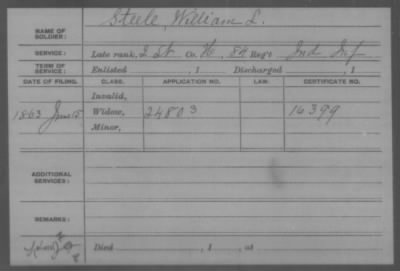 NAME OF SOLDIER: Steele, William L.
SERVICE: Late rank, 2 Lt Co. H, 84 Reg't Ind Inf
TERM OF SERVICE: Enlisted , 1 Discharged , 1
DATE OF FILING. CLASS. APPLICATION NO. LAW. CERTIFICATE NO.
Invalid,
1863 June 15 Widow, 24803 16399
Minor,
ADDITIONAL SERVICES:
REMARKS:
Died , 1 , at